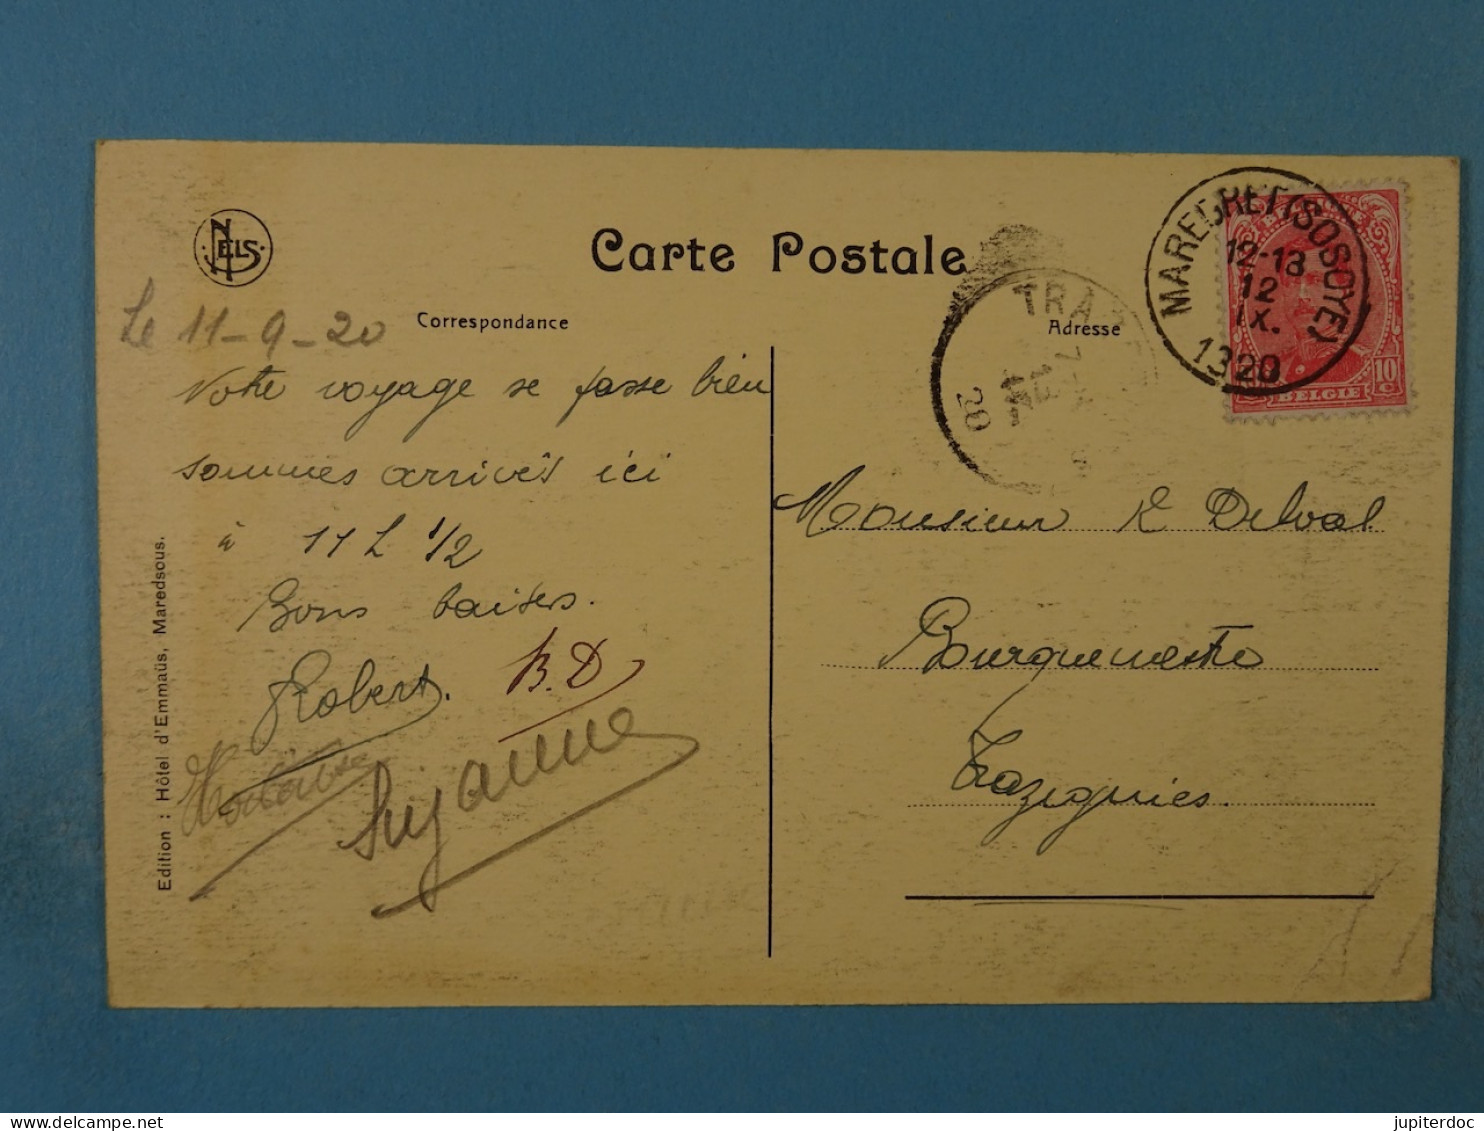 NELS
Carte Postale
Correspondance
Adresse
MAREDRET (SOSOYE)
12-13
12
IX.
1920
BELGIE
10
C
TRAZ
20
Le 11-9-20
Votre voyage se passe bien
sommes arrivés ici
à 11 h 1/2
Bons baisers.
Robert. B.D
Suzanne
Monsieur R Delval
Bourguemestre
Trazegnies.
Edition : Hôtel d'Emmaüs, Maredsous.
jupiterdoc